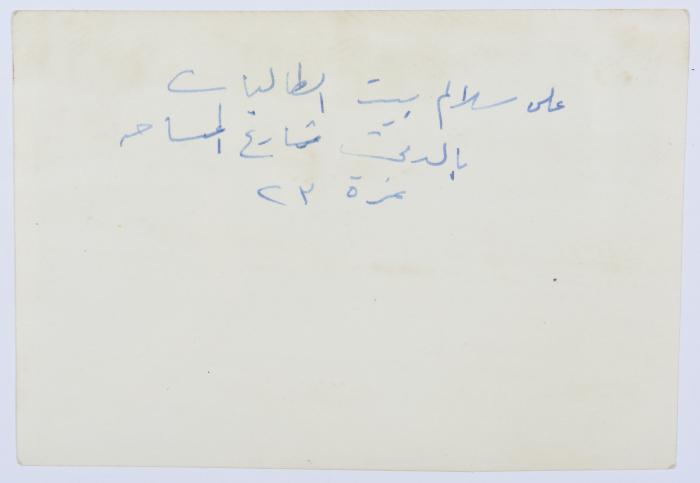 على سلالم بيت الطالبات
بالدقى شارع المساحه
نمرة ٢٣